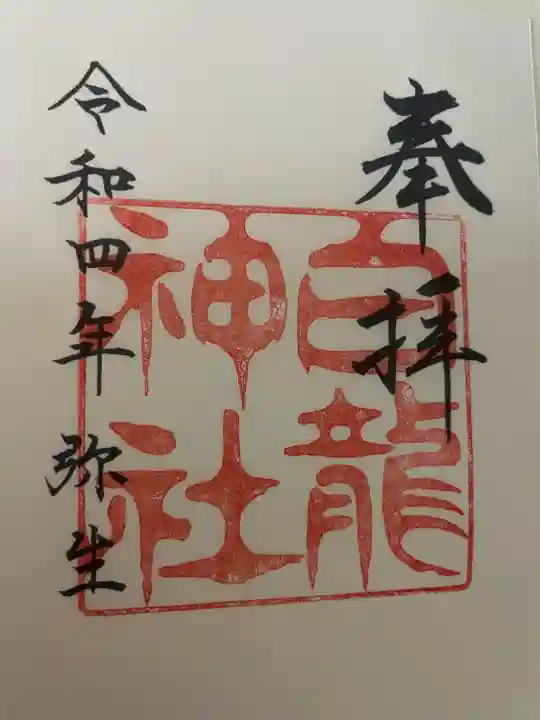 奉拝
白龍
神社
令和四年 弥生